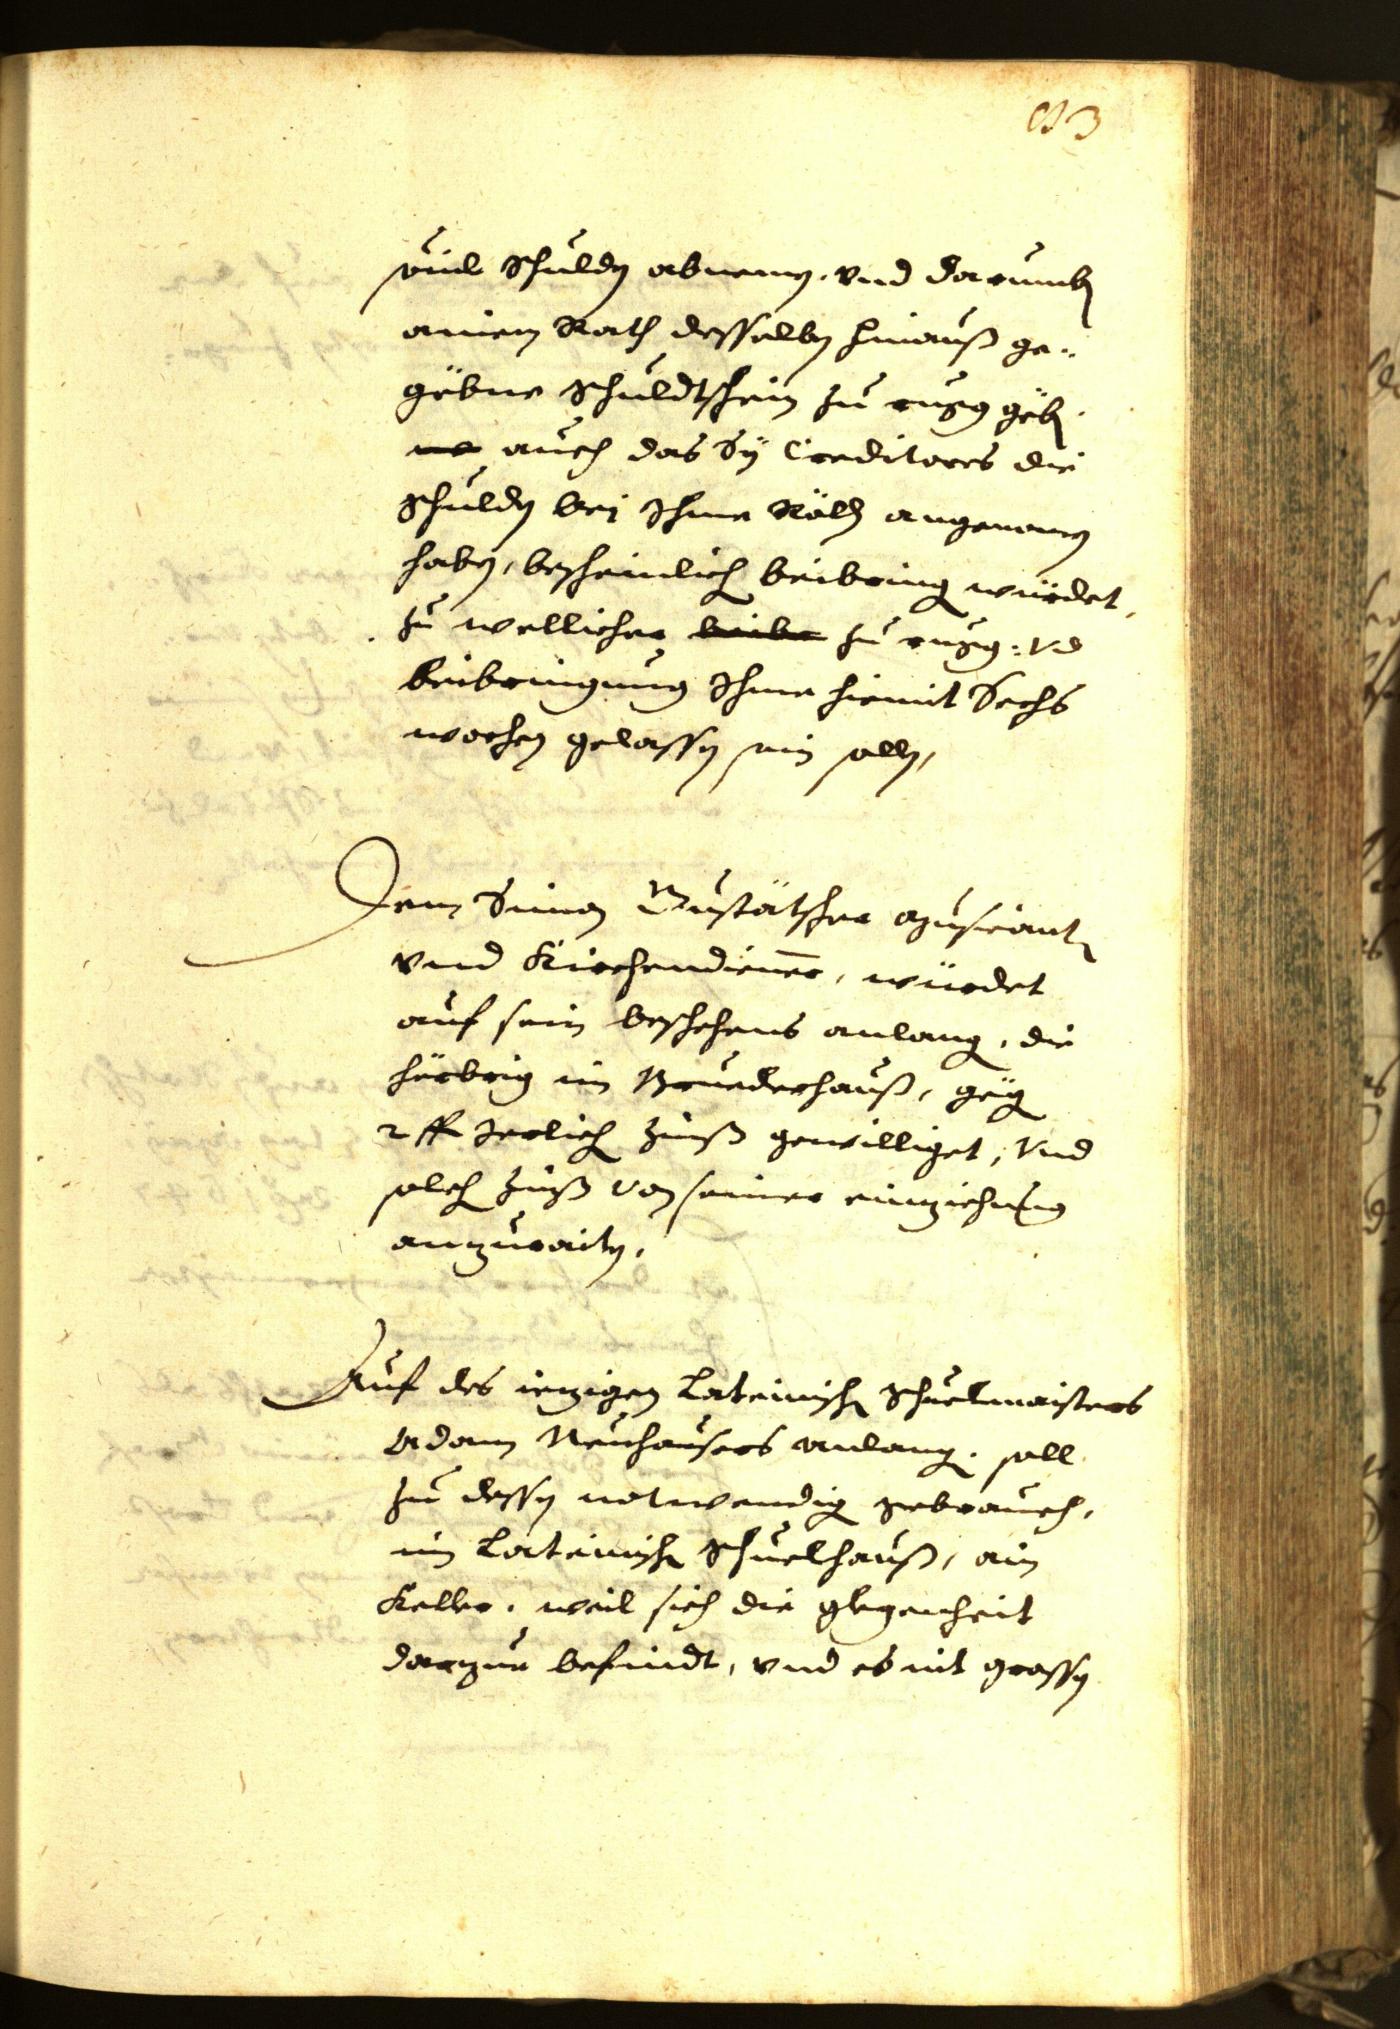 souil schulden abnemen, vnd darumben
ainem Rath desselben hinauß ge-
gebne Schuldtschein zu rugg geben
auch das Sÿ Creditores die
schulden bei Ihme angenomen
haben, bescheinlich beibringen würdet,
zu wellicher zu rugg: vnd
beibringung Ihme hiemit Sechs
wochen gelassen sein sollen,
Dem Simon
vnd Kirchendiener, würdet
auf sein beschehens anlangen, die
herbrig im Bruederhauß, gegen
2 ff Jerlichen Zinß gewilliget, vnd
solch Zinß von seiner einziehung
anzuraiten,
Auf des ietzigen Lateinischen Schuelmaisters
Adam Neuhausers anlangen, soll
zu dessen notwendigen gebrauch,
im Lateinischen Schuelhauß, ain
Keller, weil sich die glegenheit
darzue befindt, vnd es nit grossen